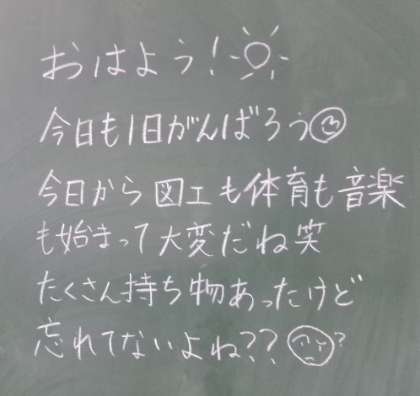 おはよう！
今日も1日がんばろう
今日から図工も体育も音楽
も始まって大変だね笑
たくさん持ち物あったけど
忘れてないよね???